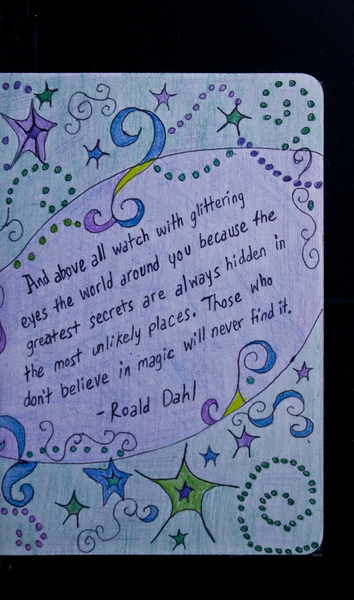 And above all watch with glittering
eyes the world around you because the
greatest secrets are always hidden in
the most unlikely places. Those who
don't believe in magic will never find it.
- Roald Dahl